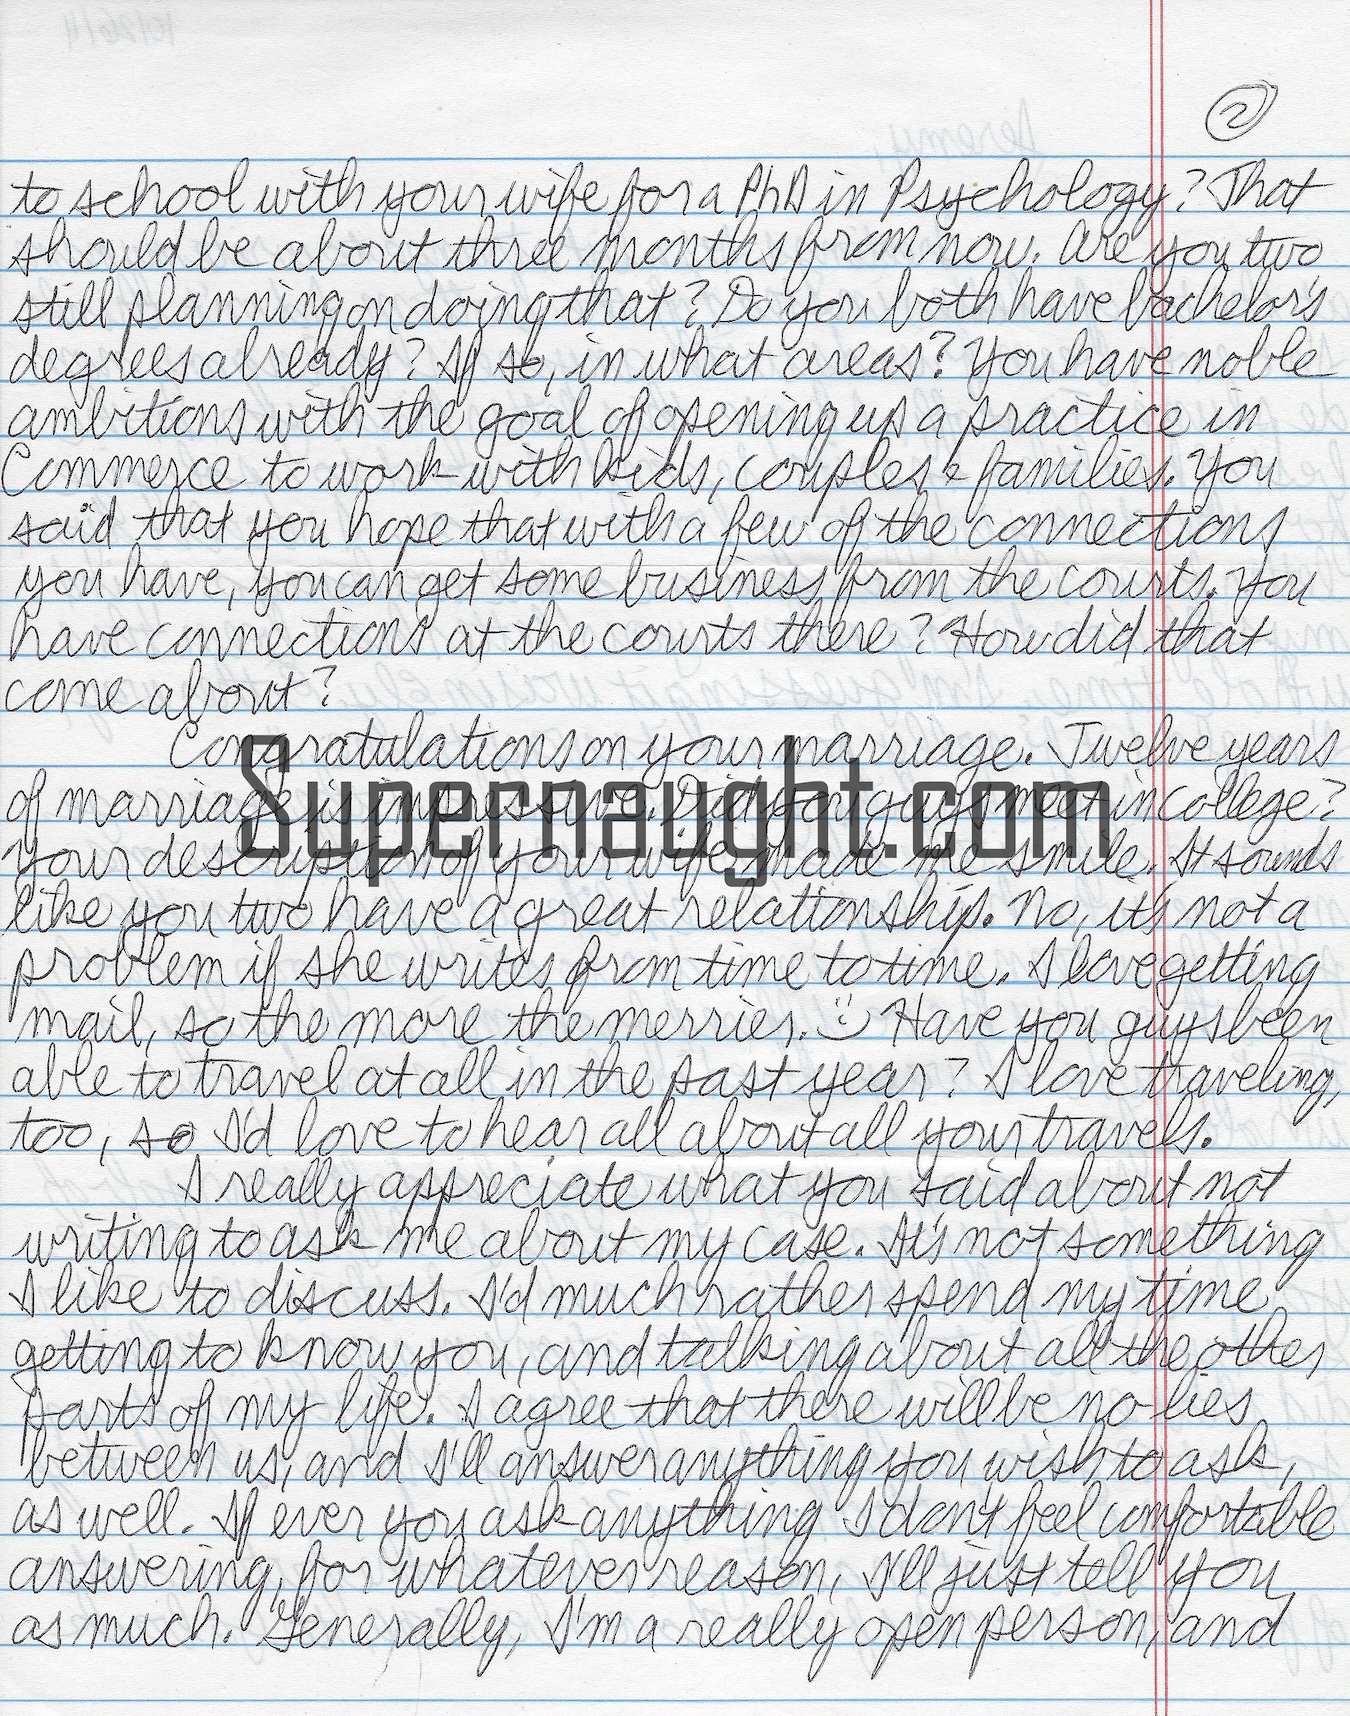 2
to school with your wife for a PhD in Psychology? That
should be about three months from now. Are you two
still planning on doing that? Do you both have bachelor's
degrees already? If so, in what areas? You have noble
ambitions with the goal of opening up a practice in
Commerce to work with kids, couples & families. You
said that you hope that with a few of the connections
you have, you can get some business from the courts. You
have connections at the courts there? How did that
come about?
Congratulations on your marriage. Twelve years
of marriage is impressive. Did you guys meet in college?
Supernaught.com
Your description of your wife made me smile. It sounds
like you two have a great relationship. No, it's not a
problem if she writes from time to time. I love getting
mail, so the more the merrier. :) Have you guys been
able to travel at all in the past year? I love traveling,
too, so I'd love to hear all about all your travels.
I really appreciate what you said about not
writing to ask me about my case. It's not something
I like to discuss. I'd much rather spend my time
getting to know you, and talking about all the other
parts of my life. I agree that there will be no lies
between us, and I'll answer anything you wish to ask,
as well. If ever you ask anything I don't feel comfortable
answering, for whatever reason, I'll just tell you
as much. Generally, I'm a really open person, and